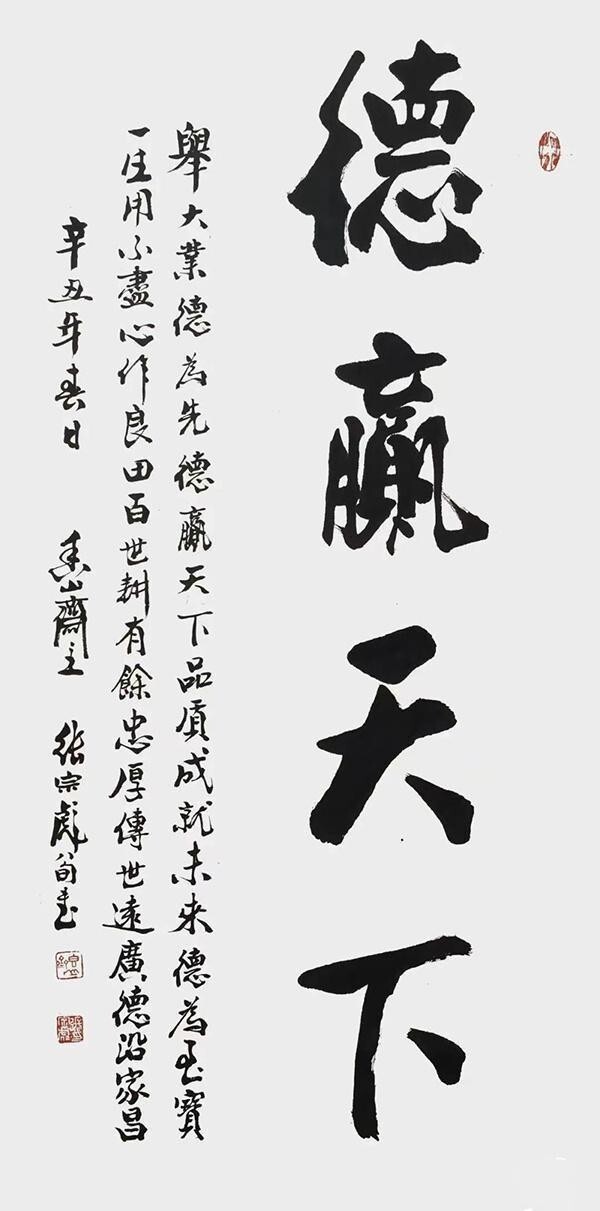 德贏天下
舉大業德為先德贏天下品質成就未來德為至寶
一生用不盡心作良田百世耕有餘忠厚傳世遠廣德沿家昌
辛丑年春日 香山齋主 張宗彪翁書